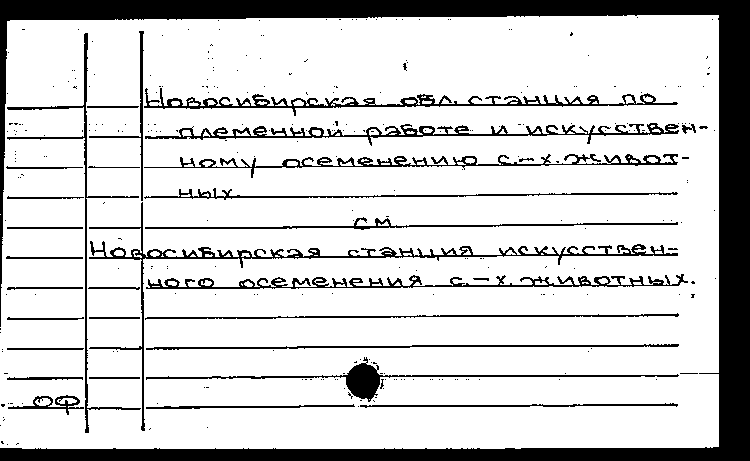 Новосибирская обл. станция по
племенной работе и искусствен-
ному осеменению с.-х. живот-
ных.
см
Новосибирская станция искусствен-
ного осеменения с.-х. животных.
ОФ